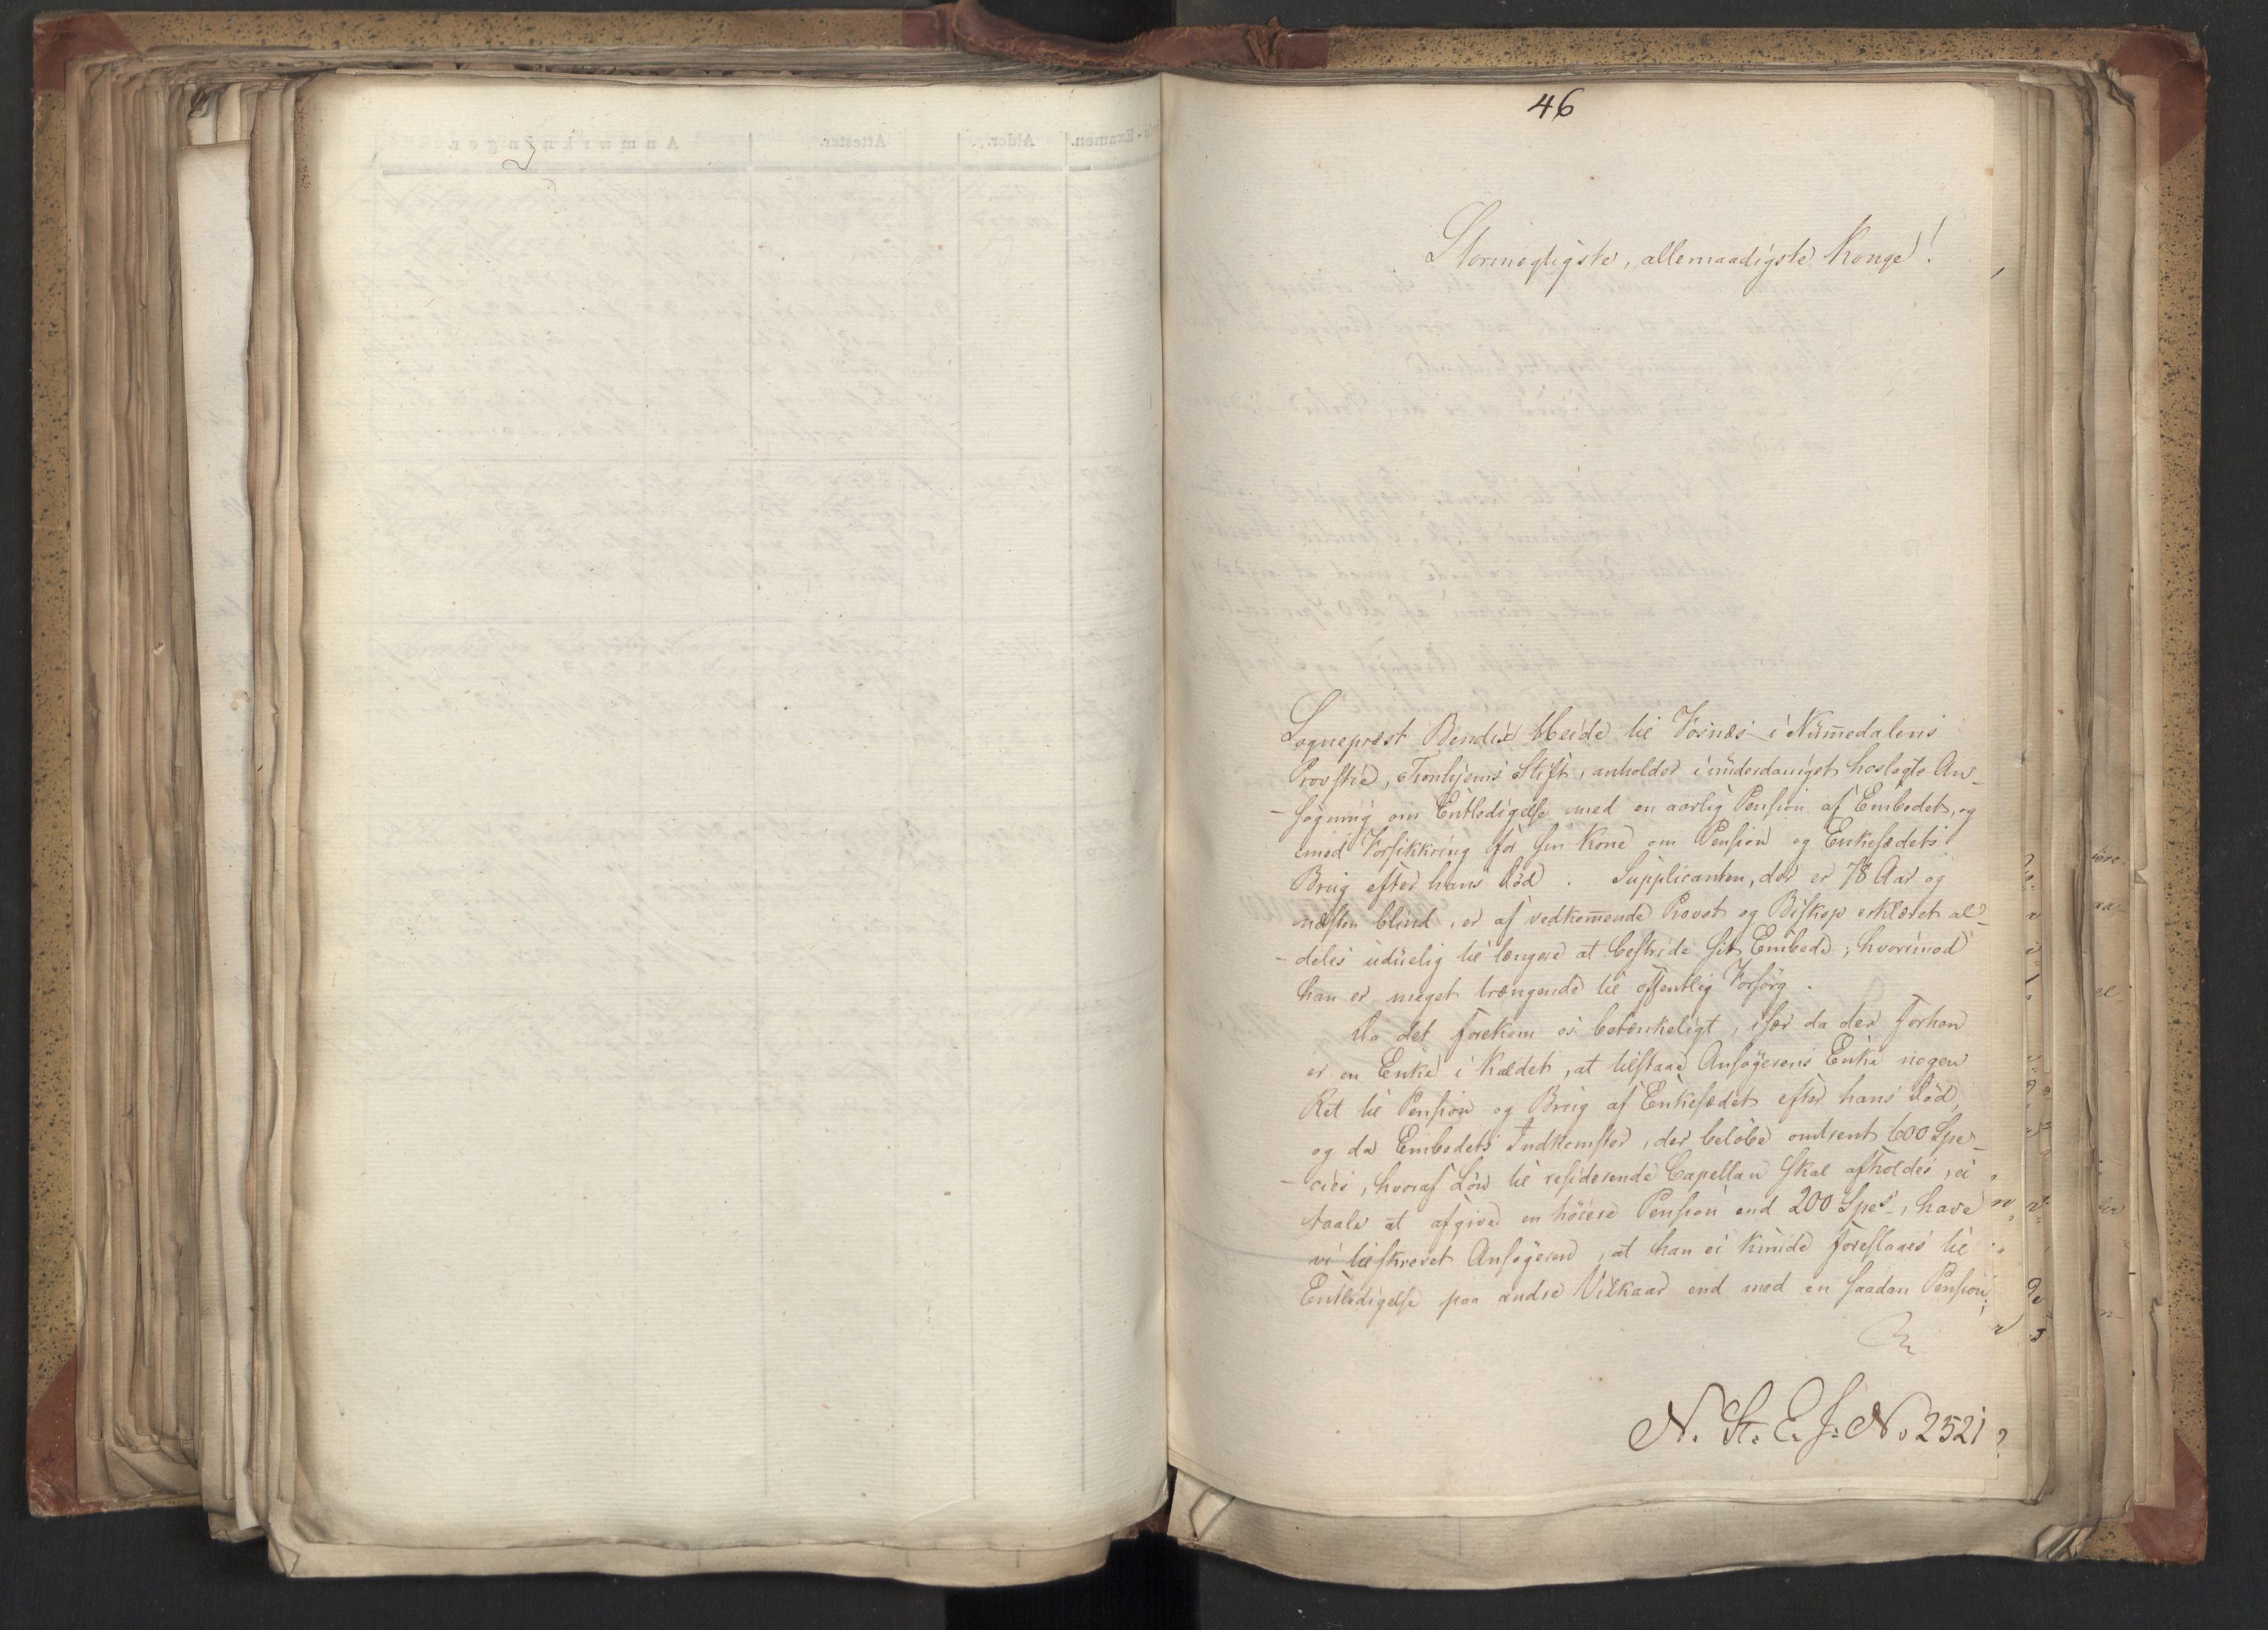 46
Stormegtigste, allernaadigste Konge!
Sogneprest Bendix Meide til Fosnæs i Nummedalens
Provstie, Tronhjems Stift, anholder i underdanigst hoslagte An-
-søgning om Entledigelse med en aarlig Pension af Embedet, og
med Forsikkring for sin Kone om Pension og Enkesædets
Brug efter hans Död. Supplicanten, der er 78 Aar og
næsten blind, er af vedkommende Provst og Biskop erklæret al-
-deles uduelig til længere at bestride sit Embede; hvorimod
han er meget trængende til offentlig Forsörg.
Da det forekom os betænkeligt, især da der forhen
er en Enke i Kaldet, at tilstaae Ansøgerens Enke nogen
Ret til Pension og Brug af Enkesædet efter hans Död,
og da Embedets Indkomster, der belöbe omtrent 600 Spe-
-cies, hvoraf Lön til residerende Capellan skal afholdes, ei
taale at afgive en höiere Pension end 200 Spes, have
vi tilskrevet Ansøgeren, at han ei kunde foreslaaes til
Entledigelse paa andre Vilkaar end med en saadan Pension;
N. St. E. J. No 2521